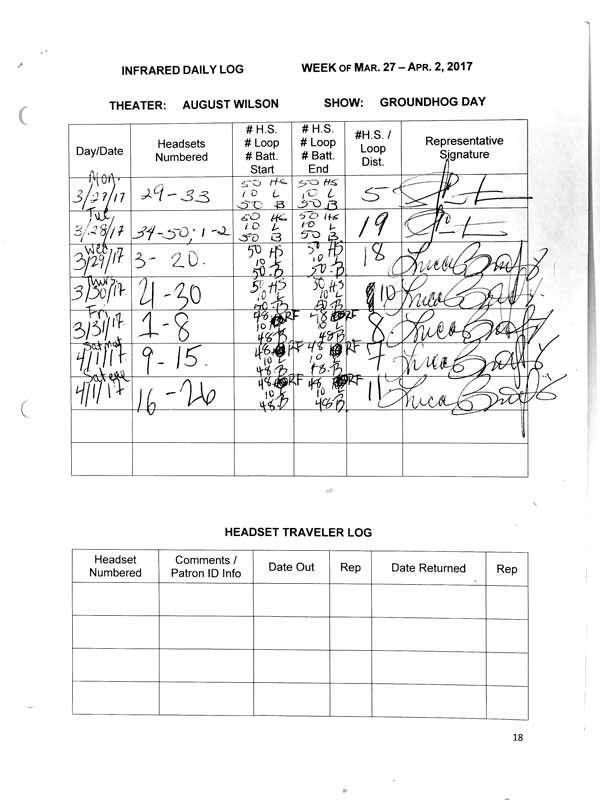 INFRARED DAILY LOG WEEK OF MAR. 27 – APR. 2, 2017
THEATER: AUGUST WILSON SHOW: GROUNDHOG DAY
Day/Date Headsets Numbered # H.S. # Loop # Batt. Start # H.S. # Loop # Batt. End #H.S. / Loop Dist. Representative Signature
Mon. 3/27/17 29-33 50 HS 10 L 50 B 50 HS 10 L 50 B 5
Tue 3/28/17 34-50; 1-2 50 HS 10 L 50 B 50 HS 10 L 50 B 19
Wed 3/29/17 3-20. 50 HS 10 L 50-B 50 HS 10 L 50-B 18
Thurs. 3/30/17 21-30 50 HS 10 L 50-B 50 HS 10 L 50-B 10
Fri 3/31/17 1-8 48 RF 10 L 48-B 48 RF 10 L 48-B 8
Sat mat 4/1/17 9-15. 48 RF 10 L 48-B 48 RF 10 L 48-B 7
Sat eve 4/1/17 16-26 48 RF 10 L 48-B 48 RF 10 L 48-B 11
HEADSET TRAVELER LOG
Headset Numbered Comments / Patron ID Info Date Out Rep Date Returned Rep
18